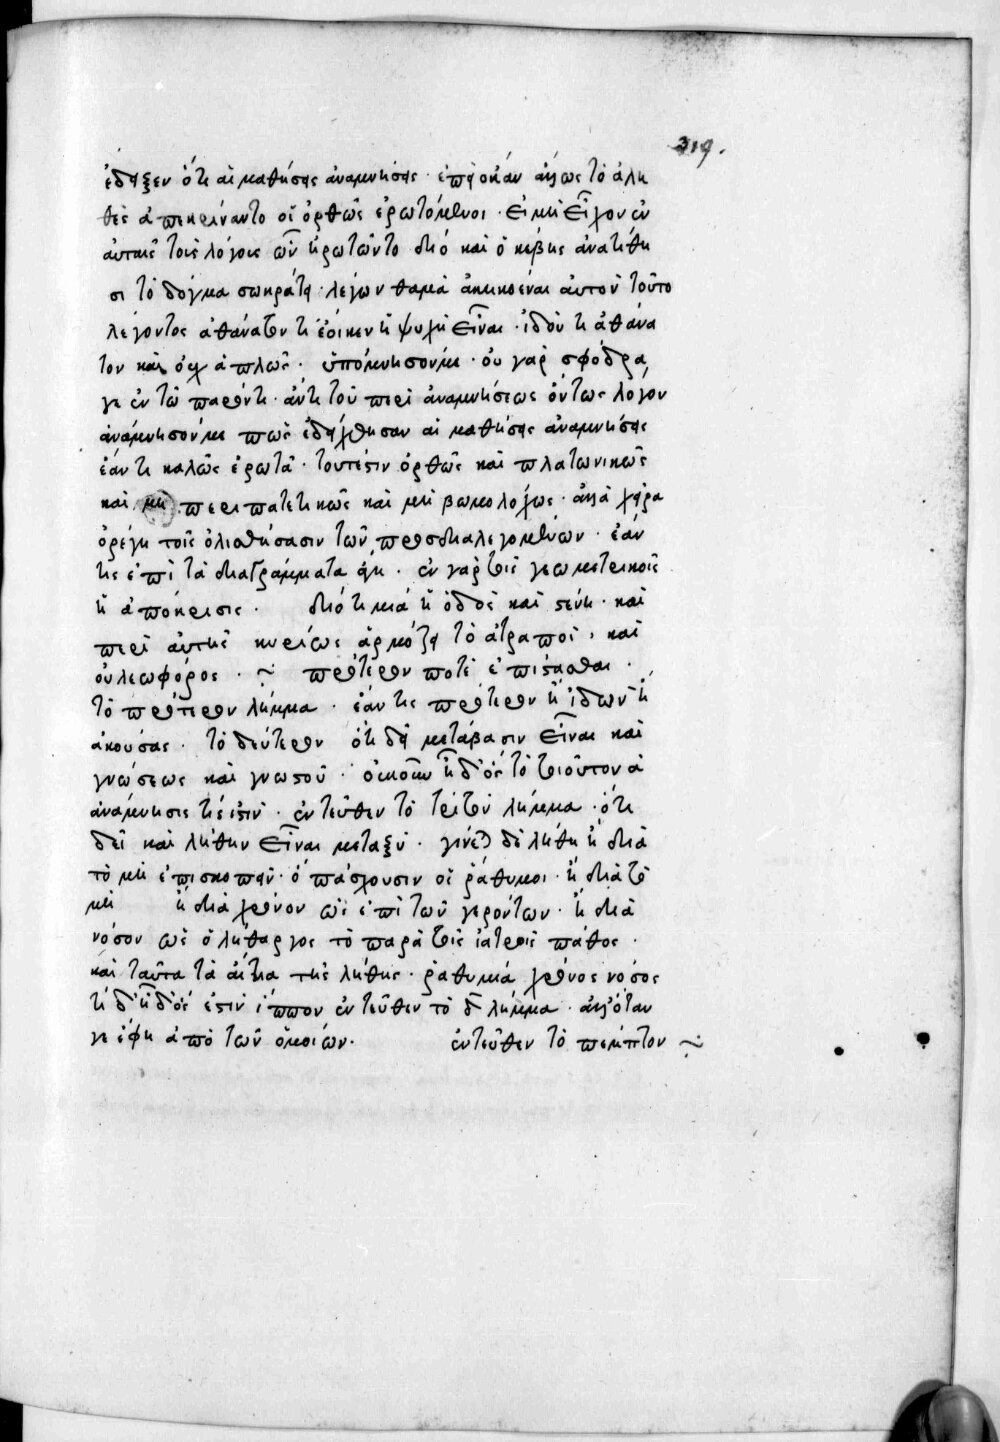 319.
ἔδειξεν ὅτι αἱ μαθήσεις ἀναμνήσεις · ἐπεὶ οὐκ ἂν ἄλλως τὸ ἀλη
θὲς ἀπεκρίναντο οἱ ὀρθῶς ἐρωτόμενοι · εἰ μὴ εἶχον ἐν
αὐταῖς τοὺς λόγους ὧν ἠρωτῶντο διό καὶ ὁ κέβης ἀνατίθη
σι τὸ δόγμα σωκράτει · λέγων θαμὰ ἀκηκοέναι αὐτοῦ τοῦτο
λέγοντος ἀθάνατόν τι ἔοικεν ἡ ψυχὴ εἶναι · ἰδοὺ τι ἀθάνα
τον καὶ οὐχ ἁπλῶς · ὑπόμνησόν με · οὐ γαρ σφόδρα
γε ἐν τῶ παρόντι · ἀντὶ τοῦ περὶ ἀναμνήσεως ὄντως λόγου
ἀνάμνησόν με πῶς ἐδείχθησαν αἱ μαθήσεις ἀναμνήσεις
ἐάν τι καλῶς ἐρωτᾶ · τουτέστιν ὀρθῶς καὶ πλατωνικῶς
καὶ μὴ περιπατητικῶς καὶ μὴ βωμολόχως · ἀλλὰ χεῖρα
ὀρέγη τοῖς ὀλισθήσασιν τῶν προσδιαλεγομένων · ἐάν
τις ἐπὶ τὰ διαγράμματα ἄγη · ἐν γαρ τοῖς γεωμετρικοῖς
ἡ ἀπόκρισις · διότι μιά ἡ ὁδὸς καὶ στενή · καὶ
περὶ αὐτῆς κυρίως ἁρμόζει τὸ ἀτραποὶ · καὶ
οὐ λεωφόρος · ~ πρότερον ποτὲ ἐπίστασθαι ·
τὸ πρότερον λήμμα · ἐάν τις πρότερον ἢ ἰδὼν ἢ
ἀκούσας · τὸ δεύτερον ὅτι δεῖ μετάβασιν εἶναι καὶ
γνώσεως καὶ γνωστοῦ · οὐκοῦν ἦ δ' ὃς τὸ τοιοῦτον ἀ
ἀνάμνησίς τίς ἐστιν · ἐντεῦθεν τὸ τρίτον λήμμα · ὅτι
δεῖ καὶ λήθην εἶναι μεταξὺ · γίνεται δὲ λήθη ἢ διὰ
τὸ μὴ ἐπισκοπεῖν · ὃ πάσχουσιν οἱ ῥάθυμοι · ἢ διὰ τὸ
μὴ ἢ διὰ χρόνον ὡς ἐπὶ τῶν γερόντων · ἢ διὰ
νόσον ὡς ὁ λήθαργος τὸ παρὰ τοῖς ἰατροῖς πάθος ·
καὶ ταῦτα τὰ αἴτια τῆς λήθης · ῥαθυμιά χρόνος νόσος
τί δ' ἦ δ' ὅς ἐστιν ἵππον ἐντεῦθεν τὸ δ λήμμα · ἀλλ' ὅταν
γε ἔφη ἀπὸ τῶν ὁμοίων · ἐντεῦθεν τὸ πέμπτον ~